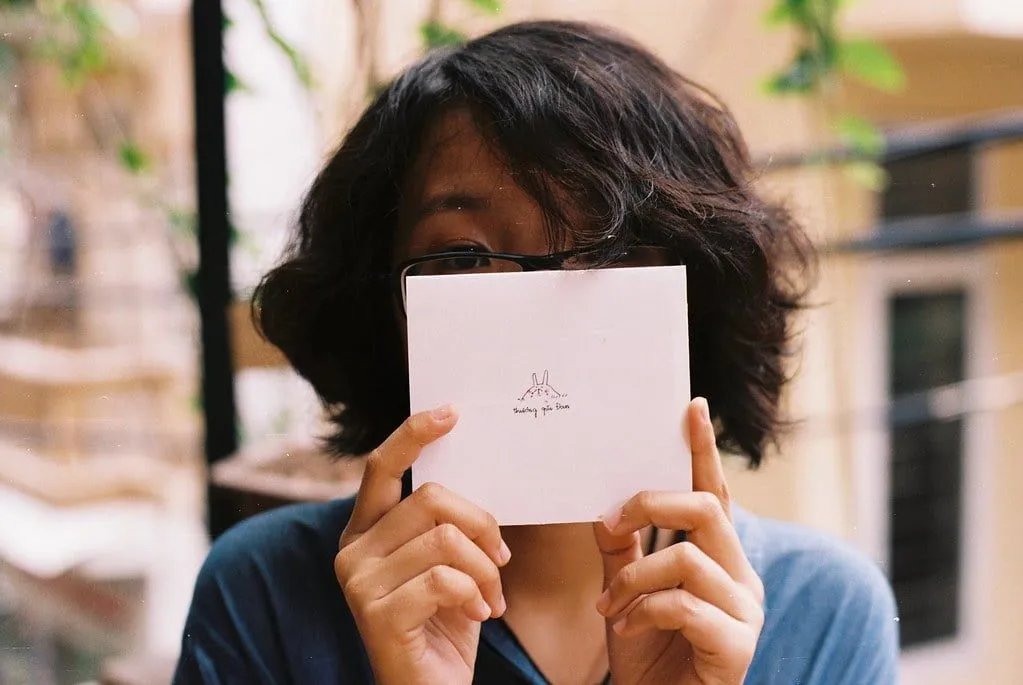 thương gửi Đan